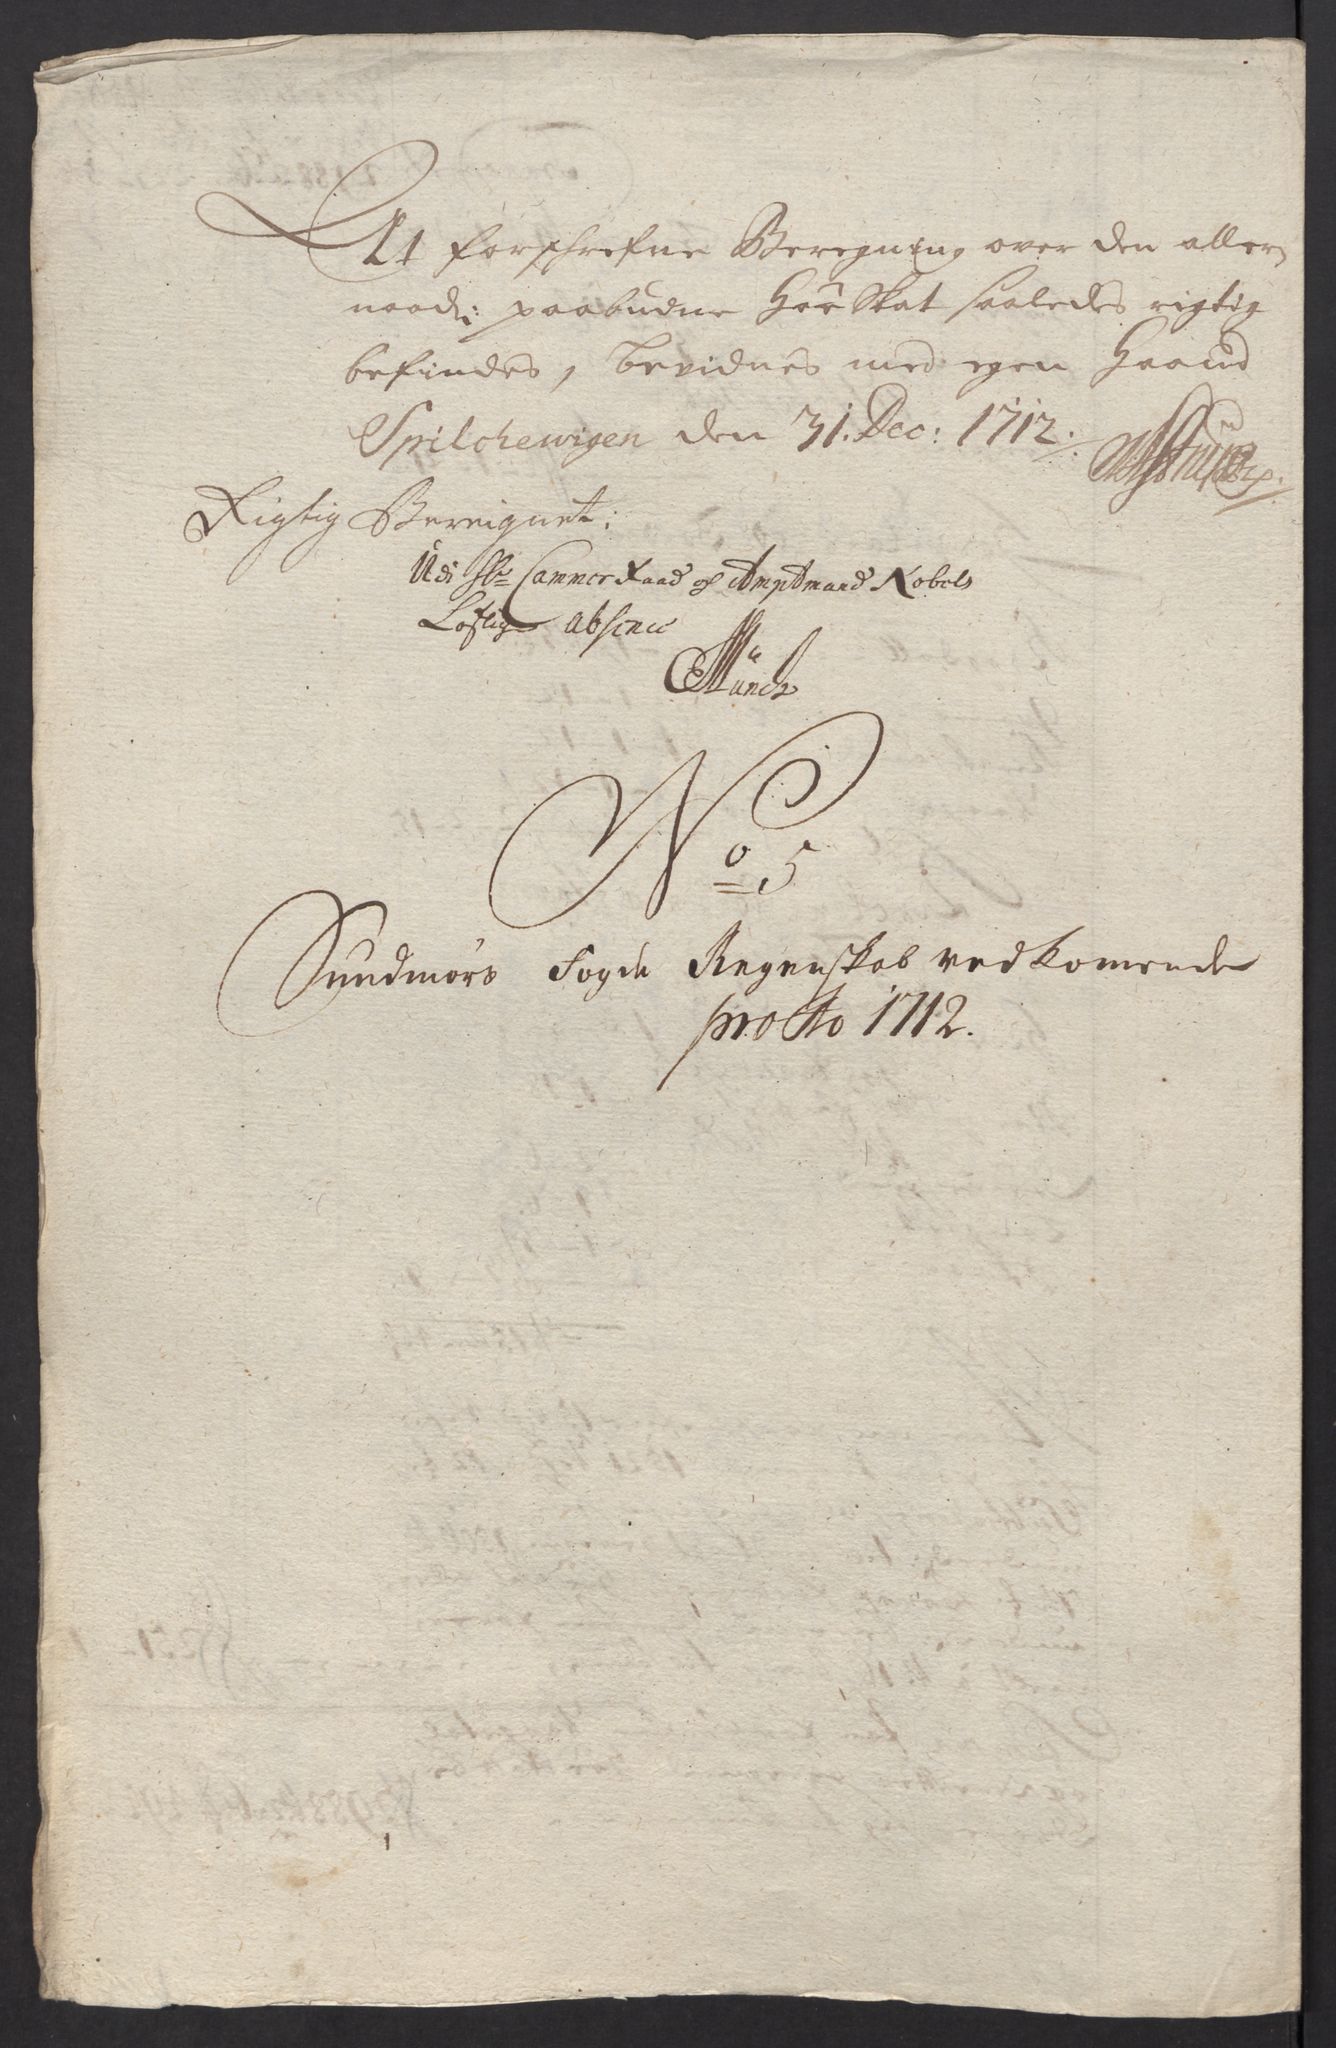 At forschrefne Beregning over den aller-
naadi: paabudne Hæ Skat saaledes rigtig
befindes, bevidnes med egen Haand
Spilchewigen den 31. Dec: 1712.
Rigtig Bereignet:
Udi Hr Cammer Raad og Amptmand Nobels
Loflig absence
Münch
No 5
Sundmørs Fogde Regenskab vedkomende
pro Ao 1712.